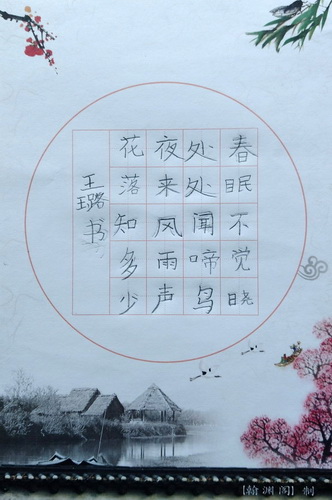 春眠不觉晓
处处闻啼鸟
夜来风雨声
花落知多少
王璐书
【翰渊阁】制